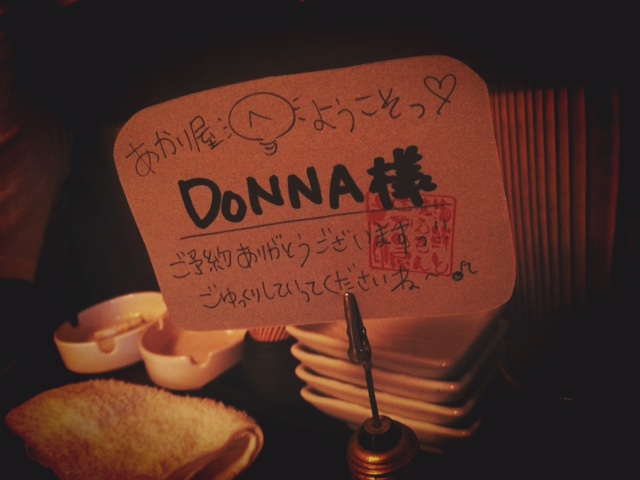 あかり屋へようこそっ♡
DONNA様
ご予約ありがとうございます
ごゆっくりしていってくださいね〜♪